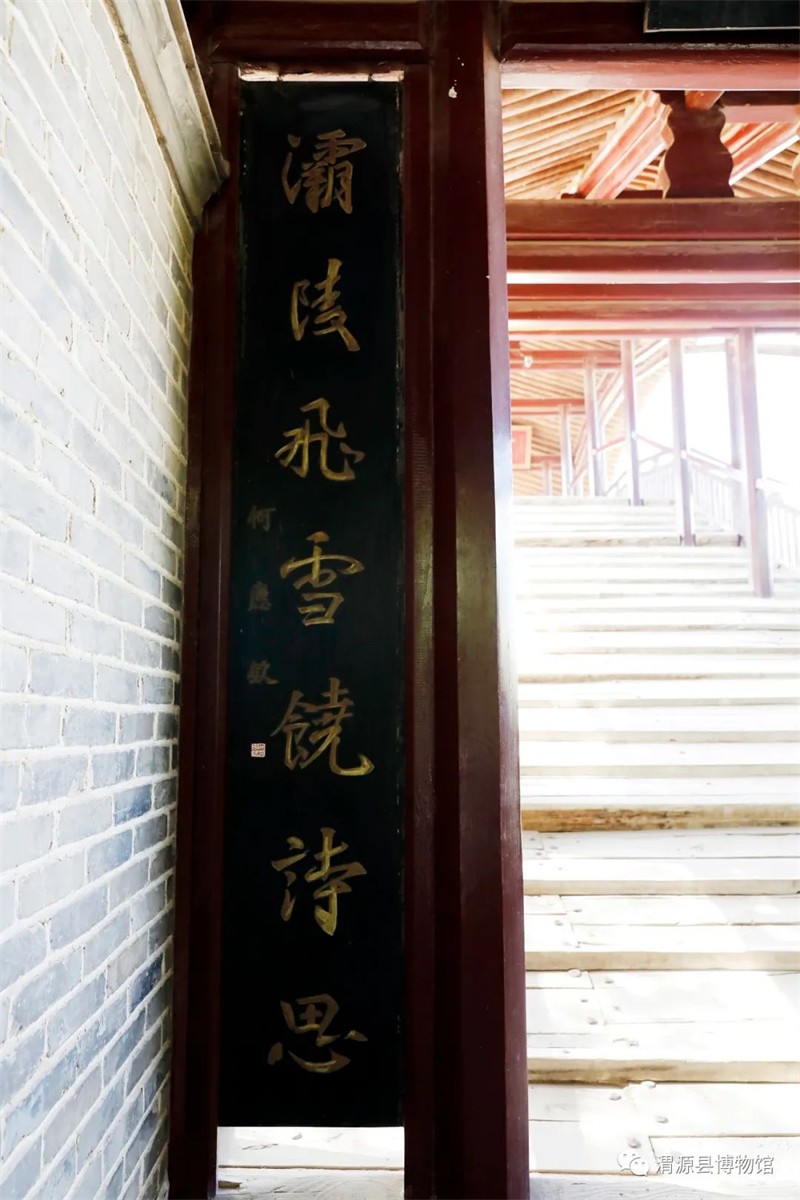 灞陵飛雪饒詩思
何應欽
渭源县博物馆